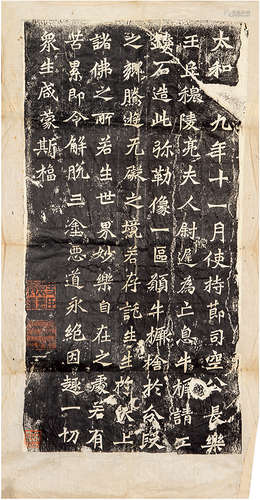 太和九年十一月使持節司空公長樂
王丘穆陵亮夫人尉遲為亡息牛橛請工
鏤石造此弥勒像一區願牛橛捨於分段
之鄉騰遊无礙之境若存託生生於上
諸佛之所若生世界妙樂自在之處若有
苦累即令解脫三塗惡道永絕因趣一切
衆生咸蒙斯福